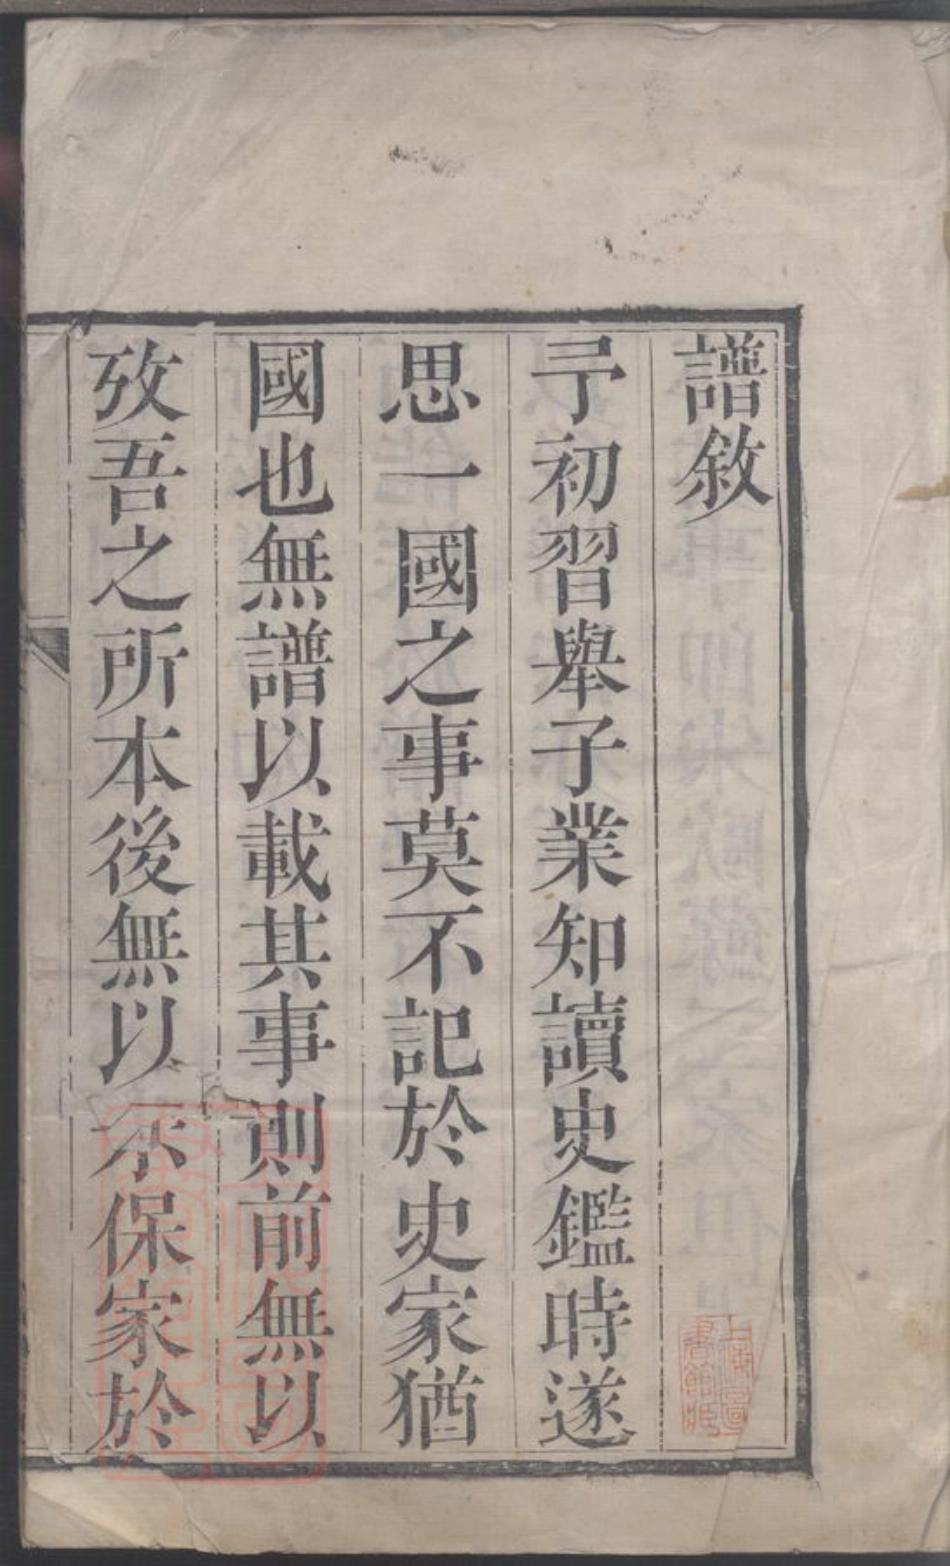 譜敘
予初習舉子業知讀史鑑時遂
思一國之事莫不記於史家猶
國也無譜以載其事則前無以
攷吾之所本後無以示保家於
上海圖書館藏